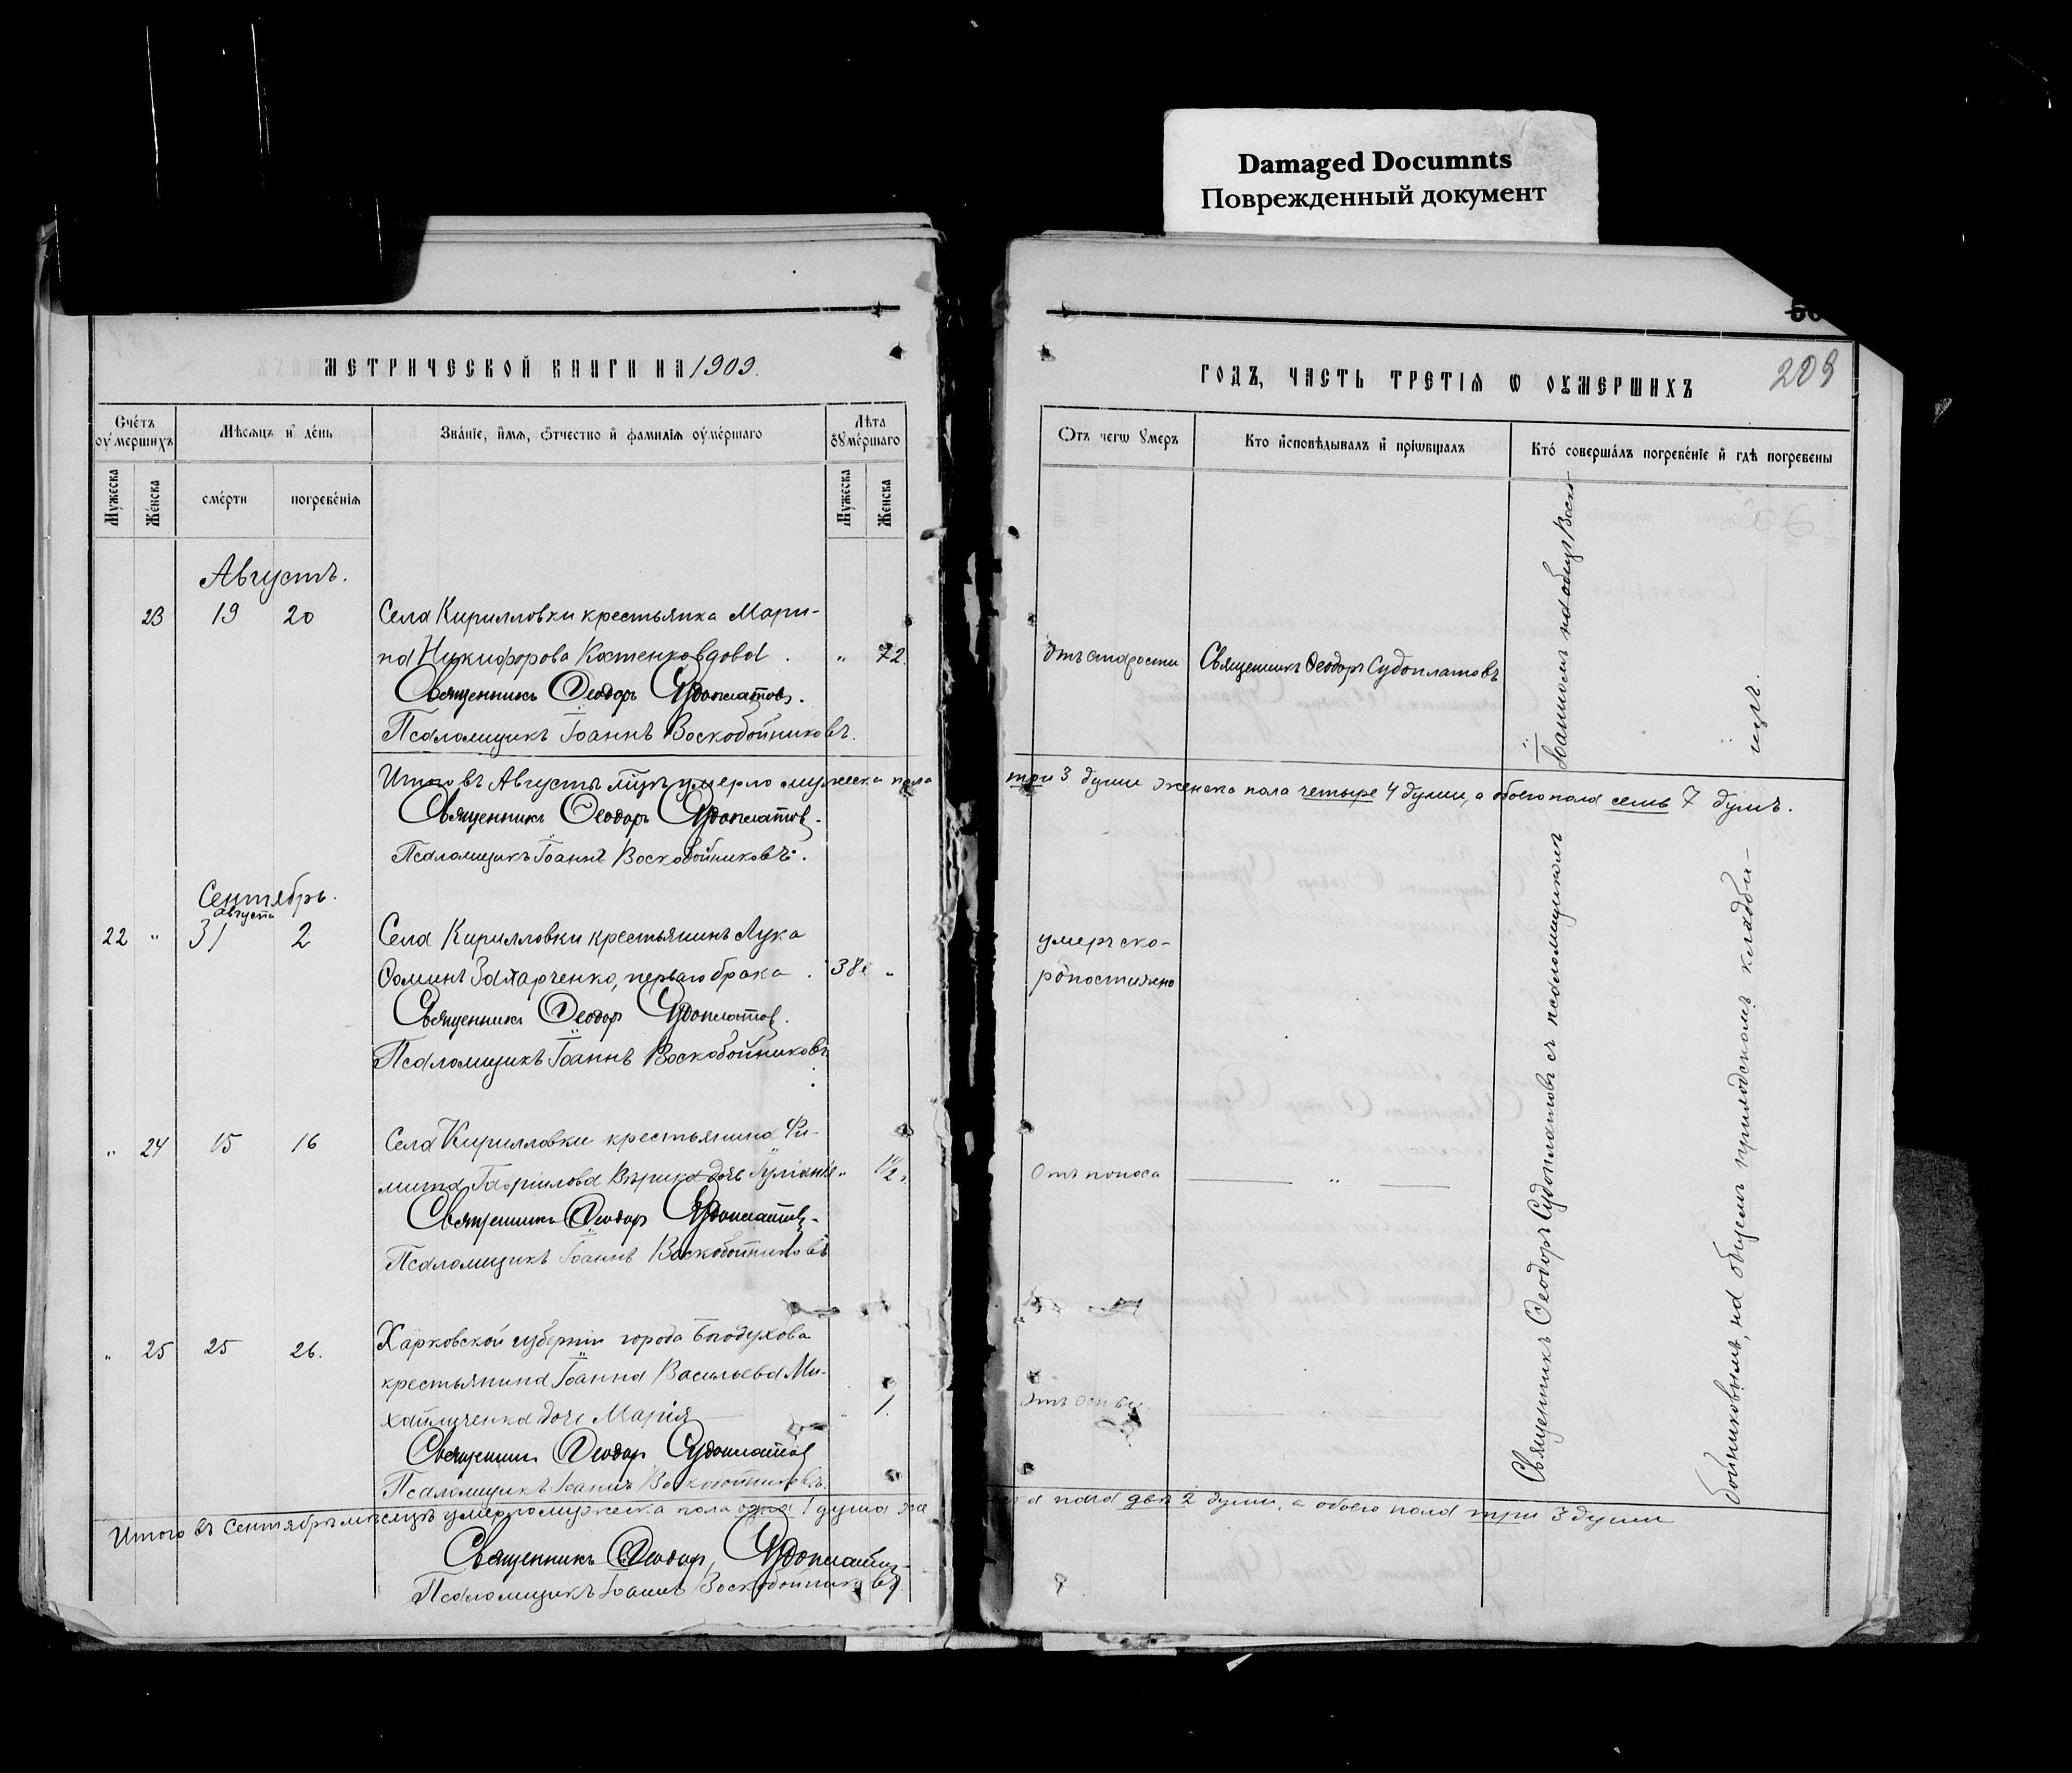 Damaged Documnts
Поврежденный документ
МЕТРИЧЕСКОЙ КНИГИ НА 1909.
Счетъ оумершихъ
Мѣсяцъ и день
Званіе, имя, отчество и фамилія оумершаго
Лѣта оумершаго
Мужеска
Женска
смерти
погребенія
Мужеска
Женска
Августъ.
23 19 20 Села Кирилловки крестьянка Мари-
на Никифорова Костенкова вдова . „ 72.
Священникъ Ѳеодоръ Судоплатовъ.
Псаломщикъ Іоаннъ Воскобойниковъ.
Итого въ Августѣ м-цѣ умерло мужеска пола
Священникъ Ѳеодоръ Судоплатовъ.
Псаломщикъ Іоаннъ Воскобойниковъ.
Сентябрь.
августа
22 „ 31 2 Села Кирилловки крестьянинъ Лука
Ѳоминъ Захарченко, перваго брака . 38 „
Священникъ Ѳеодоръ Судоплатовъ.
Псаломщикъ Іоаннъ Воскобойниковъ
„ 24 15 16 Села Кирилловки крестьянина Фи-
липа Гавріилова дочь Іуліанія „
Священникъ Ѳеодоръ Судоплатовъ
Псаломщикъ Іоаннъ Воскобойниковъ
„ 25 25 26. Харковской губерніи города Богодухова
крестьянина Іоанна Васильева Ми-
хайличенка дочь Марія „ 1.
Священникъ Ѳеодоръ Судоплатовъ
Псаломщикъ Іоаннъ Воскобойниковъ.
Итого въ Сентябрѣ мѣсяцѣ умерло мужеска пола одна 1 душа же
Священникъ Ѳеодоръ Судоплатовъ
Псаломщикъ Іоаннъ Воскобойниковъ.
209
ГОДЪ, ЧАСТЬ ТРЕТІЯ Ѡ ОУМЕРШИХЪ
Отъ чегѡ умеръ
Кто исповѣдывалъ и пріѡбщалъ
Кто совершалъ погребеніе и гдѣ погребены
Отъ старости Священникъ Ѳеодоръ Судоплатовъ
три 3 души женска пола четыре 4 души, а обоего пола семь 7 душъ.
умеръ ско-
ропостижно
Отъ поноса „
ска пола двѣ 2 души, а обоего пола три 3 души
Священникъ Ѳеодоръ Судоплатовъ съ псаломщикомъ
Іоанномъ Воско-
бойниковымъ, на общемъ приходскомъ кладби-
щѣ.